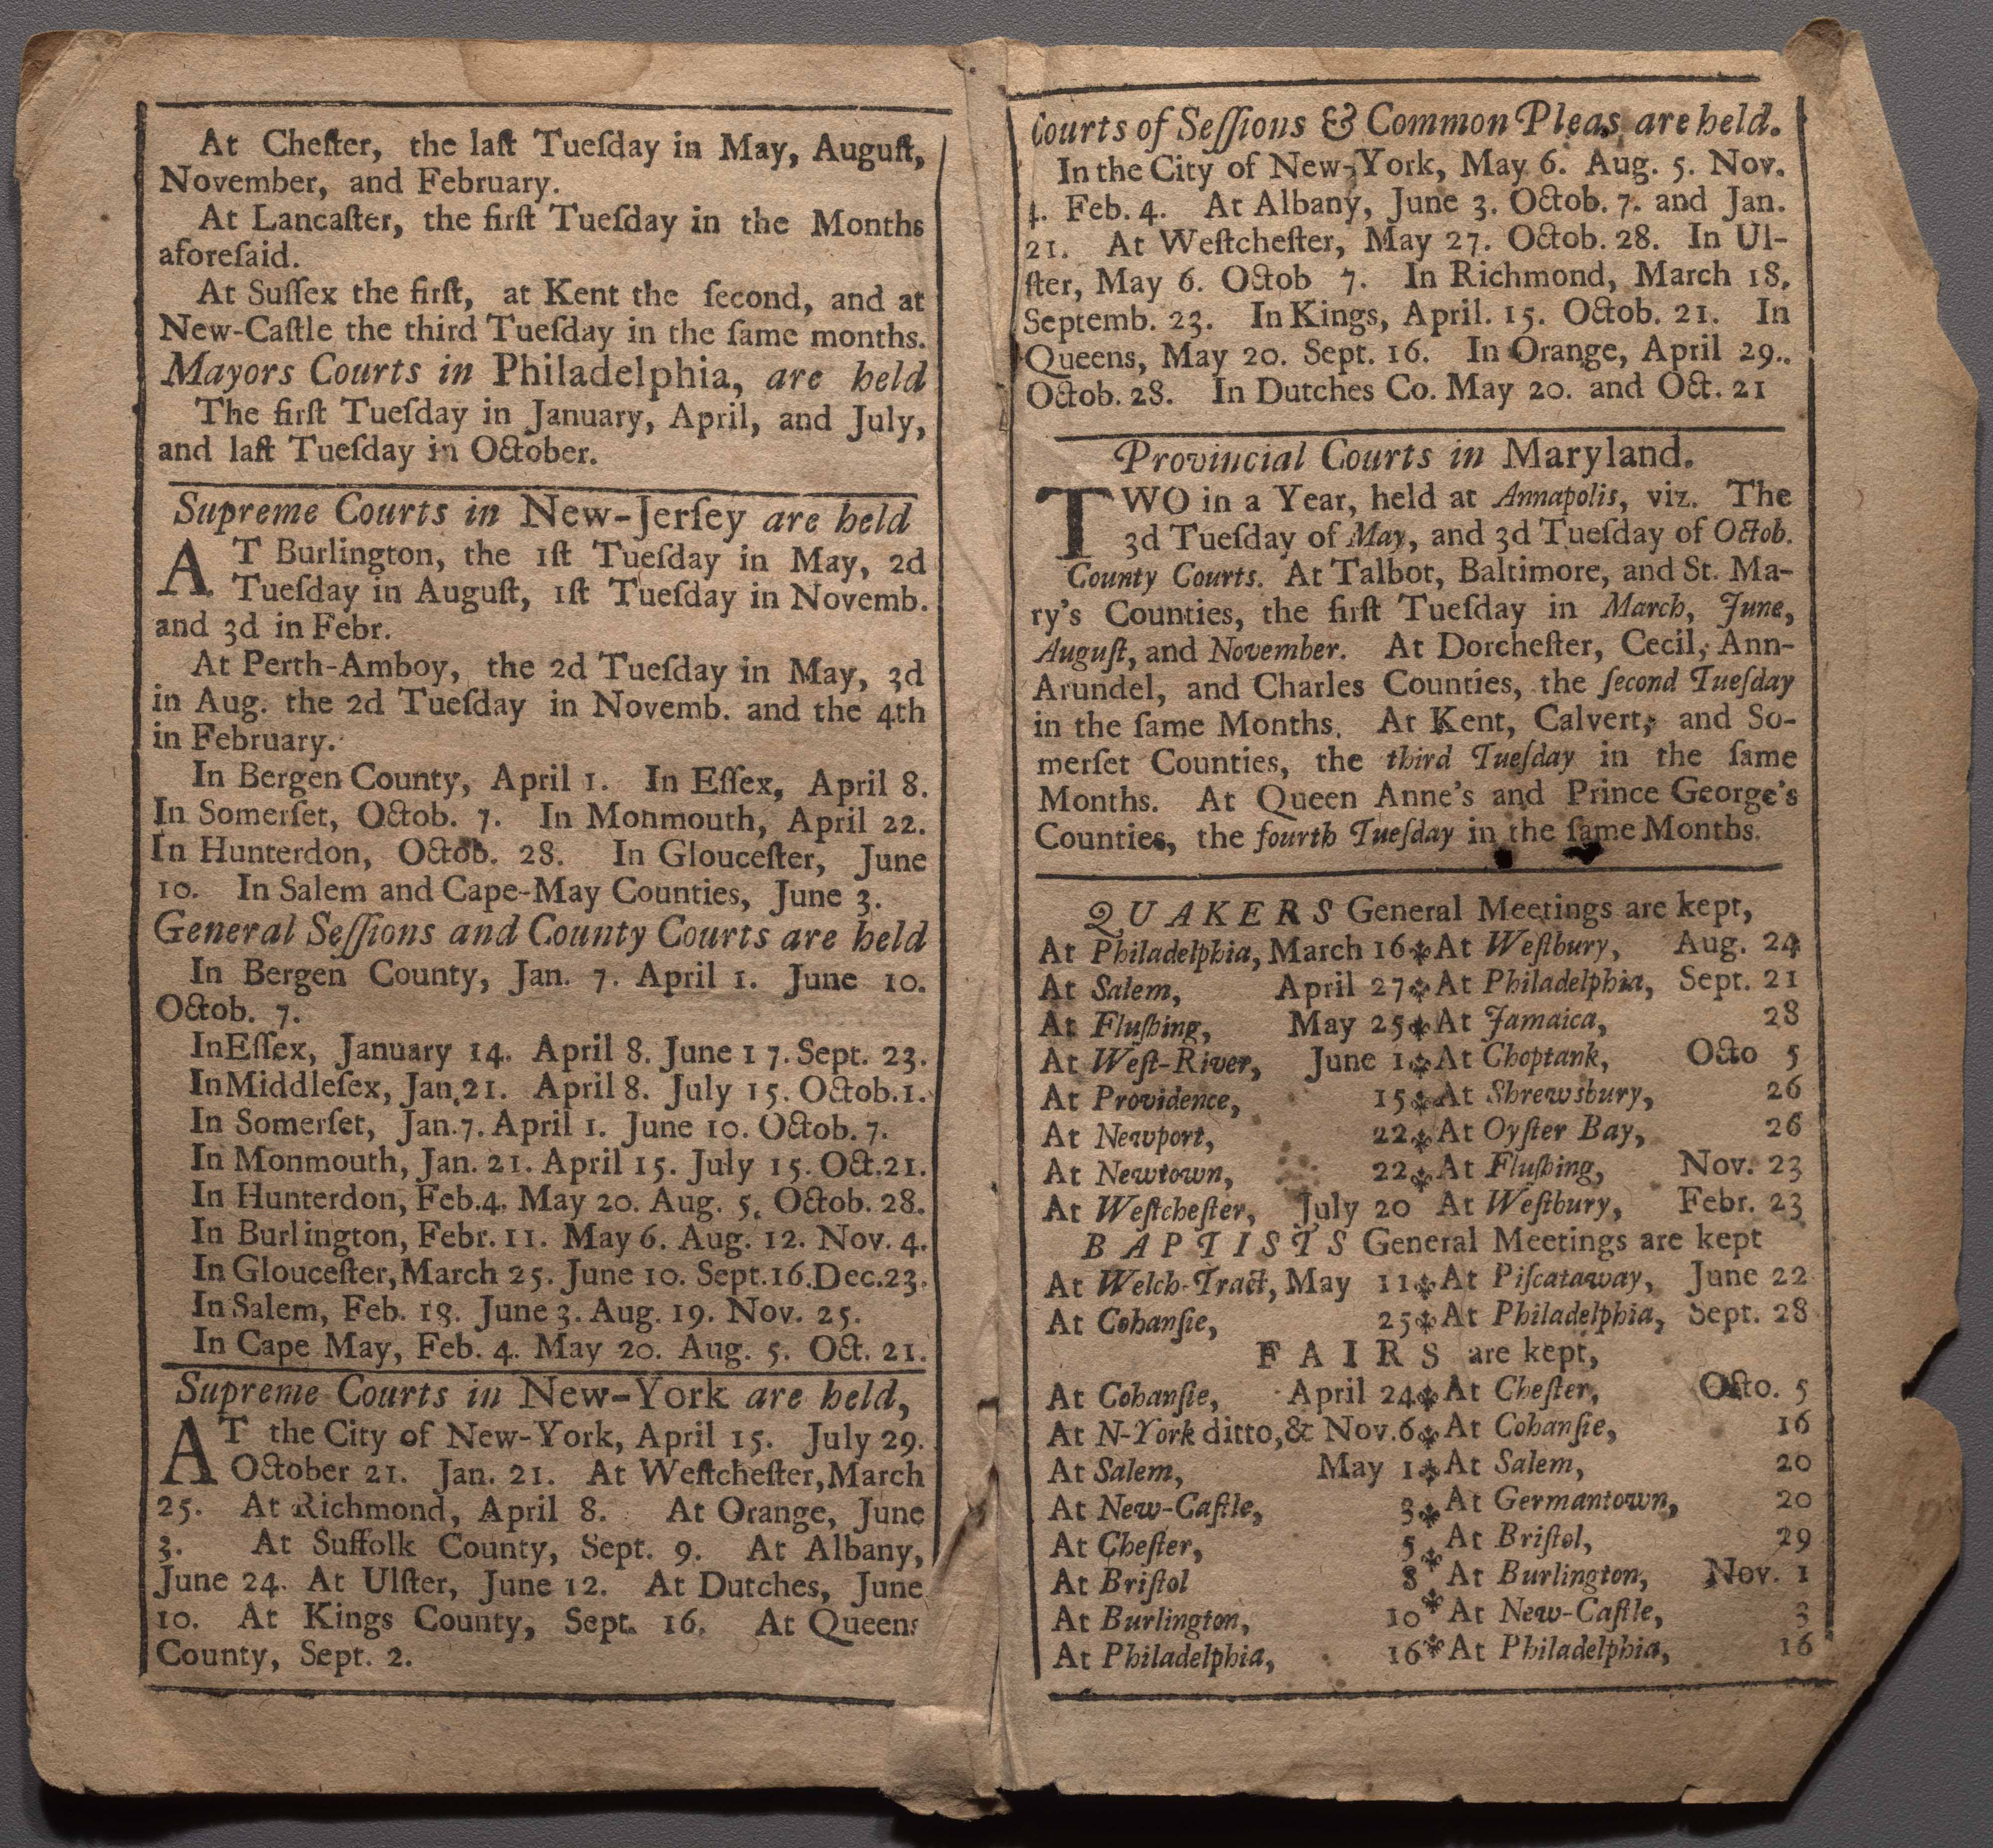 At Cheſter, the laſt Tueſday in May, Auguſt,
November, and February.
At Lancaſter, the firſt Tueſday in the Months
aforeſaid.
At Suſſex the firſt, at Kent the ſecond, and at
New-Caſtle the third Tueſday in the ſame months.
Mayors Courts in Philadelphia, are held
The firſt Tueſday in January, April, and July,
and laſt Tueſday in October.
Supreme Courts in New-Jerſey are held
AT Burlington, the 1ſt Tueſday in May, 2d
Tueſday in Auguſt, 1ſt Tueſday in Novemb.
and 3d in Febr.
At Perth-Amboy, the 2d Tueſday in May, 3d
in Aug. the 2d Tueſday in Novemb. and the 4th
in February.
In Bergen County, April 1. In Eſſex, April 8.
In Somerſet, Octob. 7. In Monmouth, April 22.
In Hunterdon, Octob. 28. In Glouceſter, June
10. In Salem and Cape-May Counties, June 3.
General Seſſions and County Courts are held
In Bergen County, Jan. 7. April 1. June 10.
Octob. 7.
In Eſſex, January 14. April 8. June 17. Sept. 23.
In Middleſex, Jan. 21. April 8. July 15. Octob. 1.
In Somerſet, Jan. 7. April 1. June 10. Octob. 7.
In Monmouth, Jan. 21. April 15. July 15. Oct. 21.
In Hunterdon, Feb. 4. May 20. Aug. 5. Octob. 28.
In Burlington, Febr. 11. May 6. Aug. 12. Nov. 4.
In Glouceſter, March 25. June 10. Sept. 16. Dec. 23.
In Salem, Feb. 18. June 3. Aug. 19. Nov. 25.
In Cape May, Feb. 4. May 20. Aug. 5. Oct. 21.
Supreme Courts in New-York are held,
AT the City of New-York, April 15. July 29.
October 21. Jan. 21. At Weſtcheſter, March
25. At Richmond, April 8. At Orange, June
3. At Suffolk County, Sept. 9. At Albany,
June 24. At Ulſter, June 12. At Dutches, June
10. At Kings County, Sept. 16. At Queens
County, Sept. 2.
Courts of Seſſions & Common Pleas are held.
In the City of New-York, May 6. Aug. 5. Nov.
4. Feb. 4. At Albany, June 3. Octob. 7. and Jan.
21. At Weſtcheſter, May 27. Octob. 28. In Ul-
ſter, May 6. Octob 7. In Richmond, March 18.
Septemb. 23. In Kings, April. 15. Octob. 21. In
Queens, May 20. Sept. 16. In Orange, April 29..
Octob. 28. In Dutches Co. May 20. and Oct. 21
Provincial Courts in Maryland.
TWO in a Year, held at Annapolis, viz. The
3d Tueſday of May, and 3d Tueſday of Octob.
County Courts. At Talbot, Baltimore, and St. Ma-
ry's Counties, the firſt Tueſday in March, June,
Auguſt, and November. At Dorcheſter, Cecil, Ann-
Arundel, and Charles Counties, the ſecond Tueſday
in the ſame Months. At Kent, Calvert, and So-
merſet Counties, the third Tueſday in the ſame
Months. At Queen Anne's and Prince George's
Counties, the fourth Tueſday in the ſame Months.
QUAKERS General Meetings are kept,
At Philadelphia, March 16 At Weſtbury, Aug. 24
At Salem, April 27 At Philadelphia, Sept. 21
At Fluſhing, May 25 At Jamaica, 28
At Weſt-River, June 1 At Choptank, Octo 5
At Providence, 15 At Shrewsbury, 26
At Newport, 22 At Oyſter Bay, 26
At Newtown, 22 At Fluſhing, Nov. 23
At Weſtcheſter, July 20 At Weſtbury, Febr. 23
BAPTISTS General Meetings are kept
At Welch-Tract, May 11 At Piſcataway, June 22
At Cohanſie, 25 At Philadelphia, Sept. 28
FAIRS are kept,
At Cohanſie, April 24 At Cheſter, Octo. 5
At N-York ditto, & Nov. 6 At Cohanſie, 16
At Salem, May 1 At Salem, 20
At New-Caſtle, 3 At Germantown, 20
At Cheſter, 5 At Briſtol, 29
At Briſtol 8 At Burlington, Nov. 1
At Burlington, 10 At New-Caſtle, 3
At Philadelphia, 16 At Philadelphia, 16